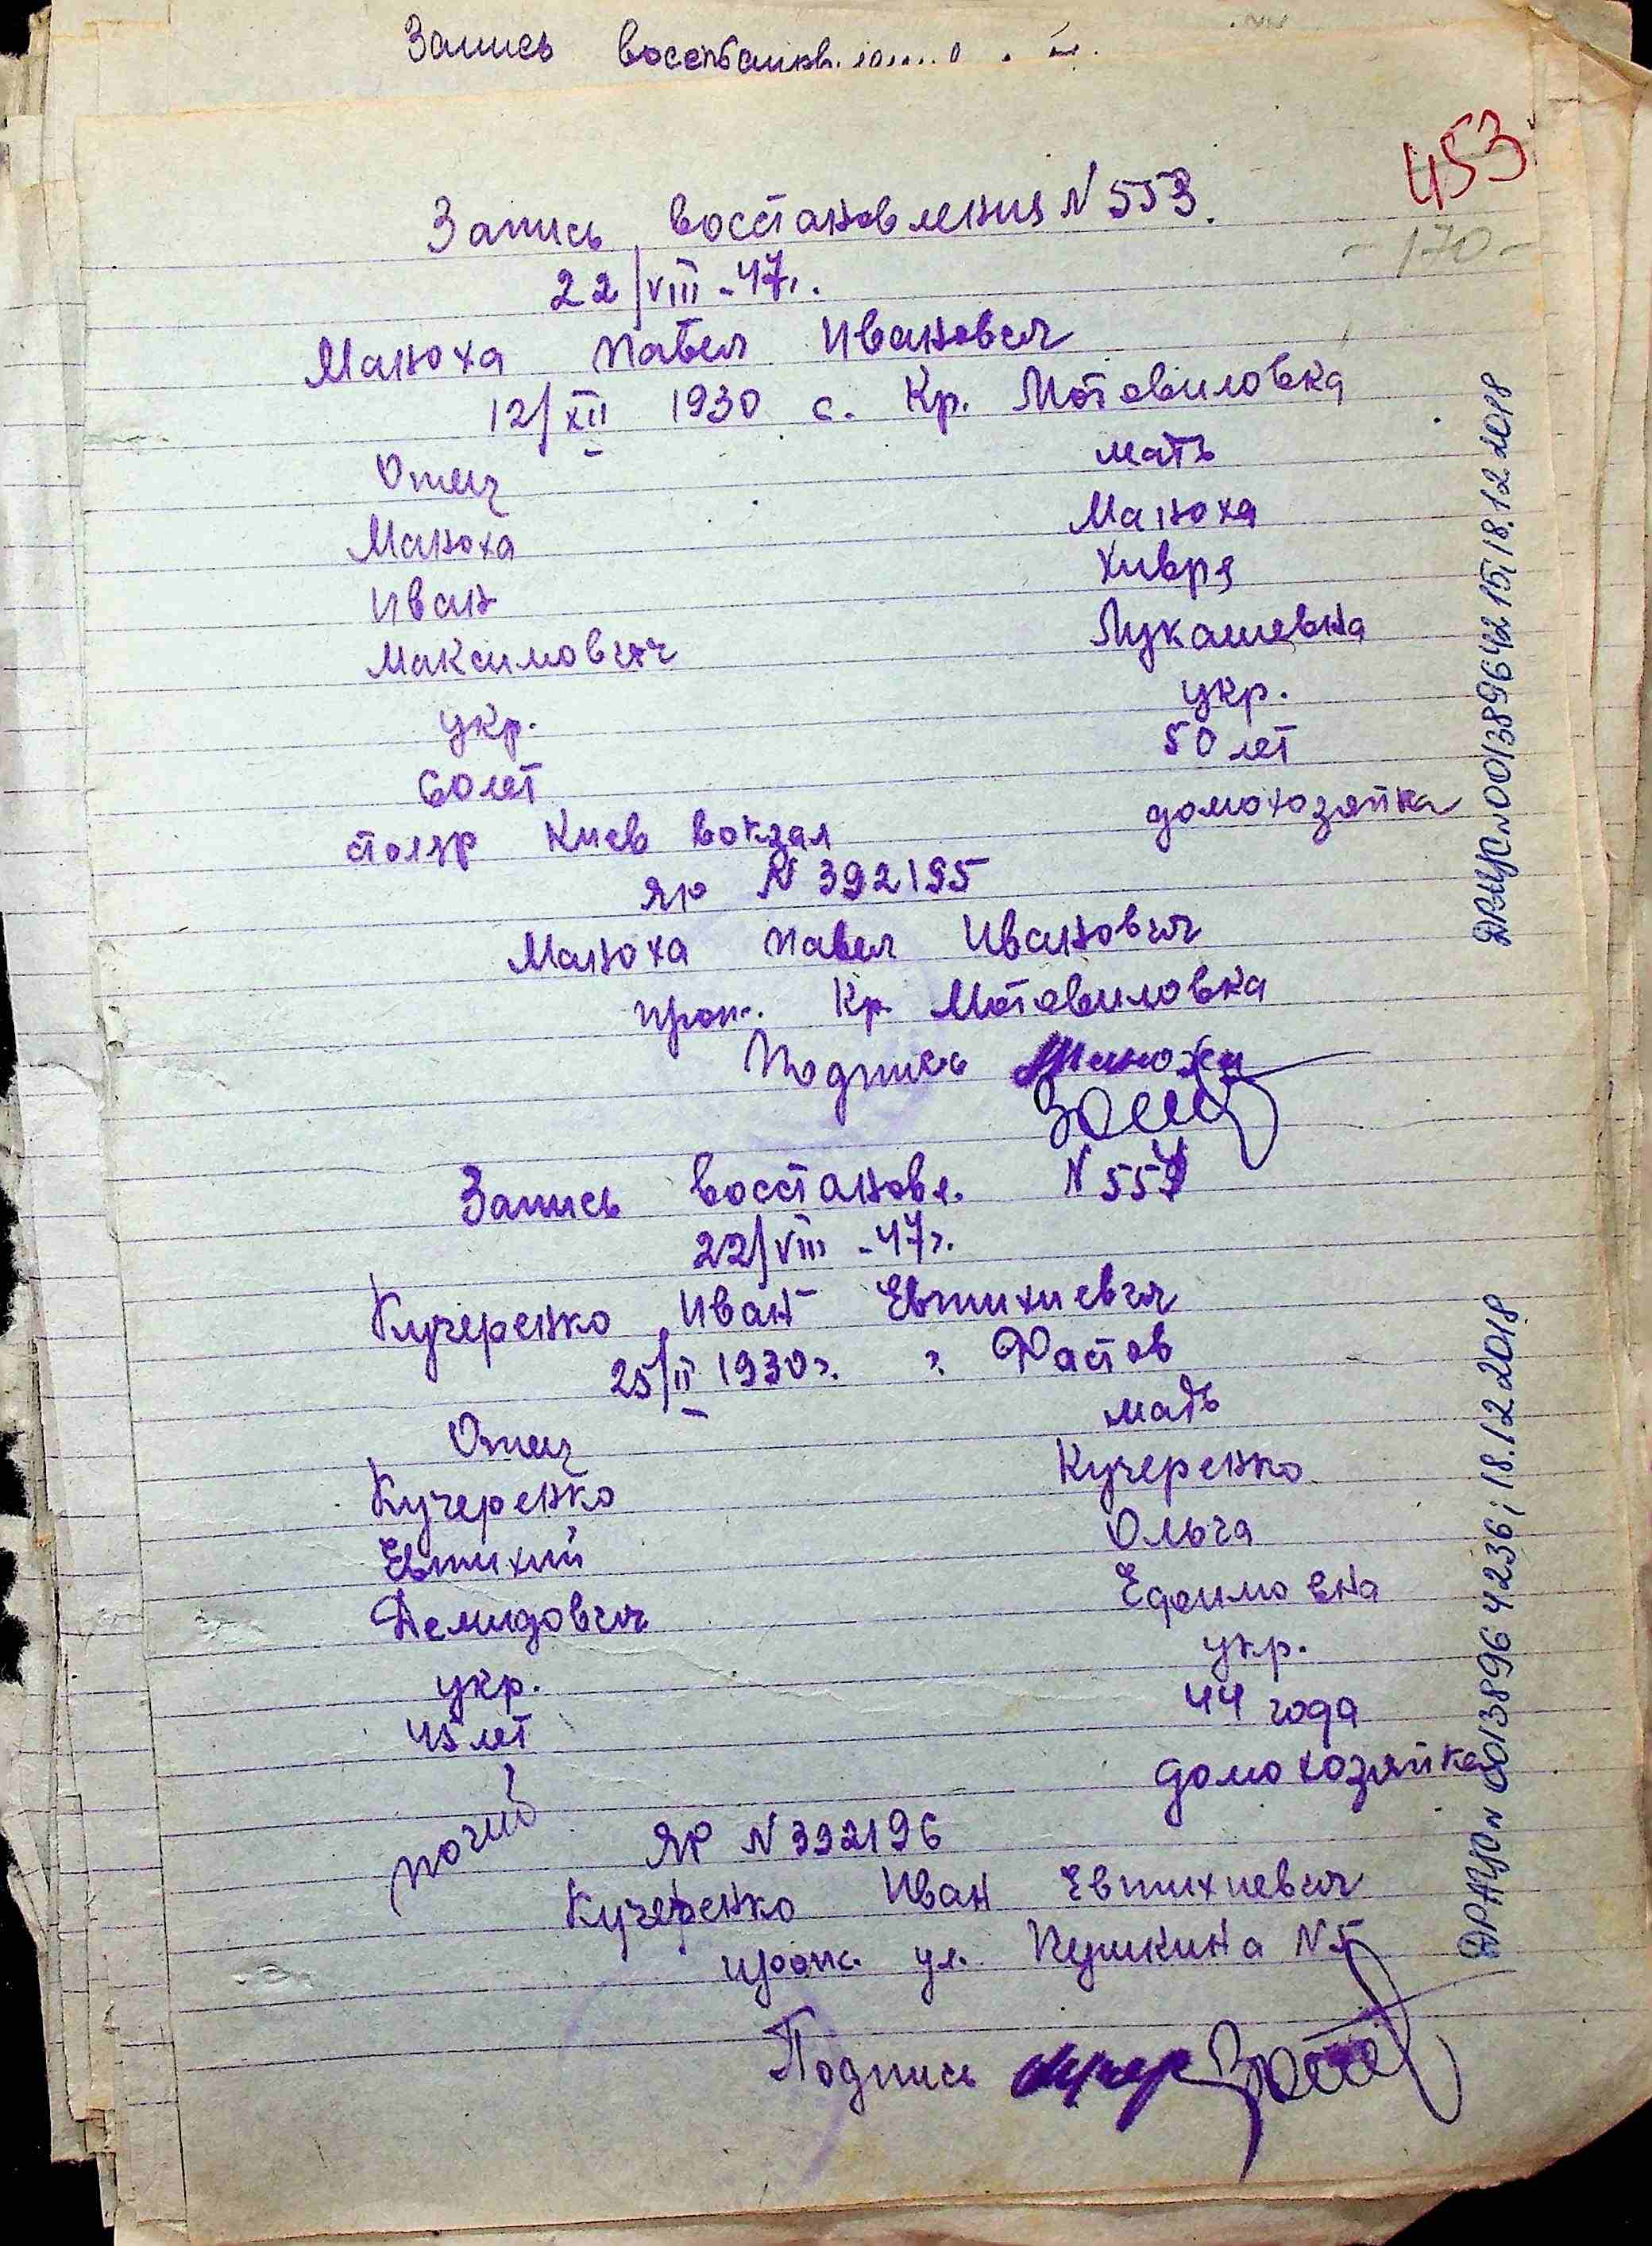 Запись
453
Запись восстановления N 553.
- 170 -
22/VIII - 47г.
Манюха Павел Иванович
12/XII 1930 с. Кр. Мотовиловка
Отец мать
Манюха Манюха
Иван Хивря
Максимович Лукашевна
укр. укр.
60 лет 50 лет
столяр Киев вокзал домохозяйка
ЯР N 392195
Манюха Павел Иванович
прож. Кр. Мотовиловка
Подпись
Запись восстановл. N 554
22/VIII - 47г.
Кучеренко Иван Евтихиевич
25/II 1930г. г. Фастов
Отец мать
Кучеренко Кучеренко
Евтихий Ольга
Демидович Ефимовна
укр. укр.
45 лет 44 года
погиб домохозяйка
ЯР N 392196
Кучеренко Иван Евтихиевич
прож. ул. Пушкина N 5
Подпись
ДРАЦС N 00138964215; 18.12.2018
ДРАЦС N 00138964236; 18.12.2018